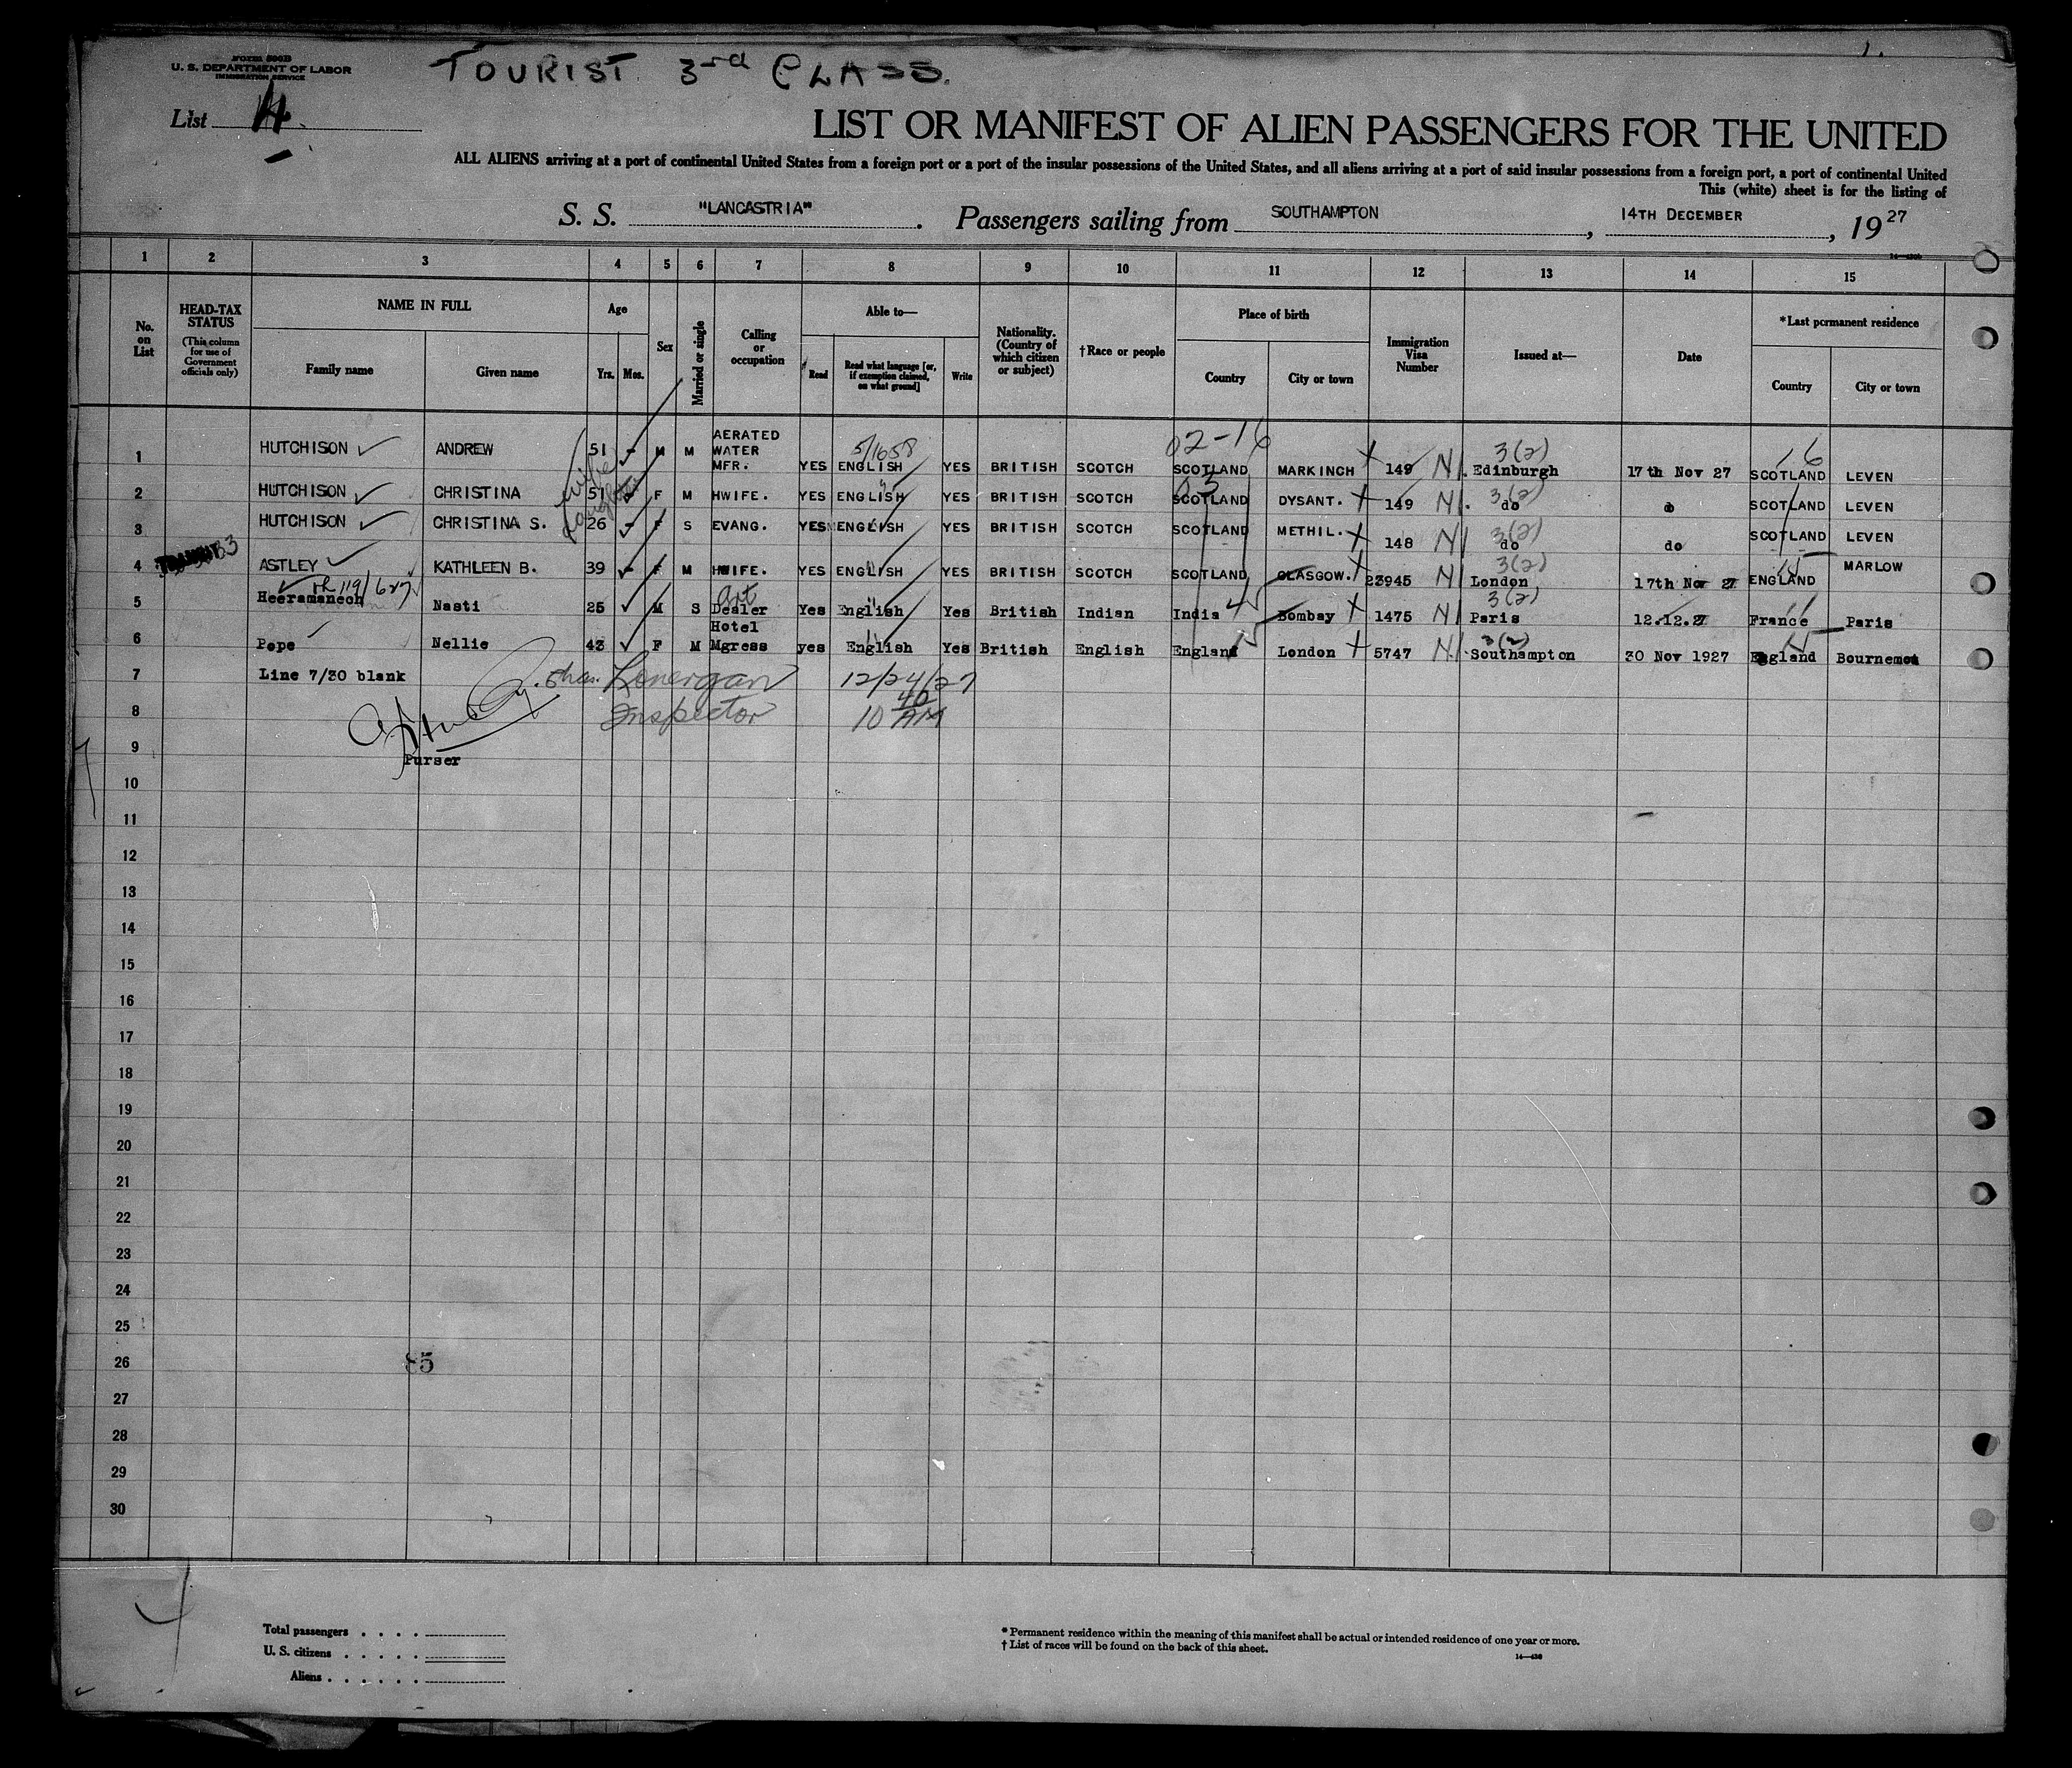 FORM 500B
U. S. DEPARTMENT OF LABOR
IMMIGRATION SERVICE
TOURIST 3rd CLASS.
1.
List 4
LIST OR MANIFEST OF ALIEN PASSENGERS FOR THE UNITED
ALL ALIENS arriving at a port of continental United States from a foreign port or a port of the insular possessions of the United States, and all aliens arriving at a port of said insular possessions from a foreign port, a port of continental United
This (white) sheet is for the listing of
S. S. "LANCASTRIA". Passengers sailing from SOUTHAMPTON, 14TH DECEMBER, 1927
1 2 3 4 5 6 7 8 9 10 11 12 13 14 15
No. on List
HEAD-TAX STATUS (This column for use of Government officials only)
NAME IN FULL
Family name Given name
Age
Yrs. Mos.
Sex
Married or single
Calling or occupation
Able to—
Read Read what language [or, if exemption claimed, on what ground] Write
Nationality. (Country of which citizen or subject)
†Race or people
Place of birth
Country City or town
Immigration Visa Number
Issued at—
Date
*Last permanent residence
Country City or town
5/1658 02-16 3(2) 16
1 HUTCHISON ANDREW 51 - M M AERATED WATER MFR. YES ENGLISH YES BRITISH SCOTCH SCOTLAND MARKINCH 149 N Edinburgh 17th Nov 27 SCOTLAND LEVEN
wife 03 3(2)
2 HUTCHISON CHRISTINA 51 F M HWIFE. YES ENGLISH YES BRITISH SCOTCH SCOTLAND DYSANT. 149 N do do SCOTLAND LEVEN
daughter 3(2)
3 HUTCHISON CHRISTINA S. 26 - F S EVANG. YES ENGLISH YES BRITISH SCOTCH SCOTLAND METHIL. 148 N do do SCOTLAND LEVEN
TRANSIT 33 3(2) 15
4 ASTLEY KATHLEEN B. 39 - F M HWIFE. YES ENGLISH YES BRITISH SCOTCH SCOTLAND GLASGOW. 23945 N London 17th Nov 27 ENGLAND MARLOW
Art 3(2)
5 Heeramanech Nasti 25 M S Dealer Yes English Yes British Indian India Bombay 1475 N Paris 12.12.27 France Paris
3(2)
6 Pope Nellie 43 F M Hotel Mgress yes English Yes British English England London 5747 N Southampton 30 Nov 1927 England Bournemot
7 Line 7/30 blank Chas. Lonergan 12/24/27
8 Inspector 10 40 AM
9
Purser
10
11
12
13
14
15
16
17
18
19
20
21
22
23
24
25
26 85
27
28
29
30
Total passengers . . . .
U. S. citizens . . . . .
Aliens . . . . . .
* Permanent residence within the meaning of this manifest shall be actual or intended residence of one year or more.
† List of races will be found on the back of this sheet.
14—430